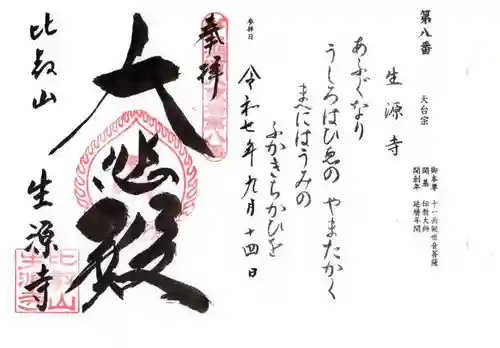 第八番
天台宗
生源寺
御本尊 十一面観世音菩薩
開基 伝教大師
開創年 延暦年間
あふぐなり
うしろはひゑの やまたかく
まへにはうみの
ふかきちかひを
参拝日
令和七年九月十四日
奉拝
大悲殿
比叡山
生源寺